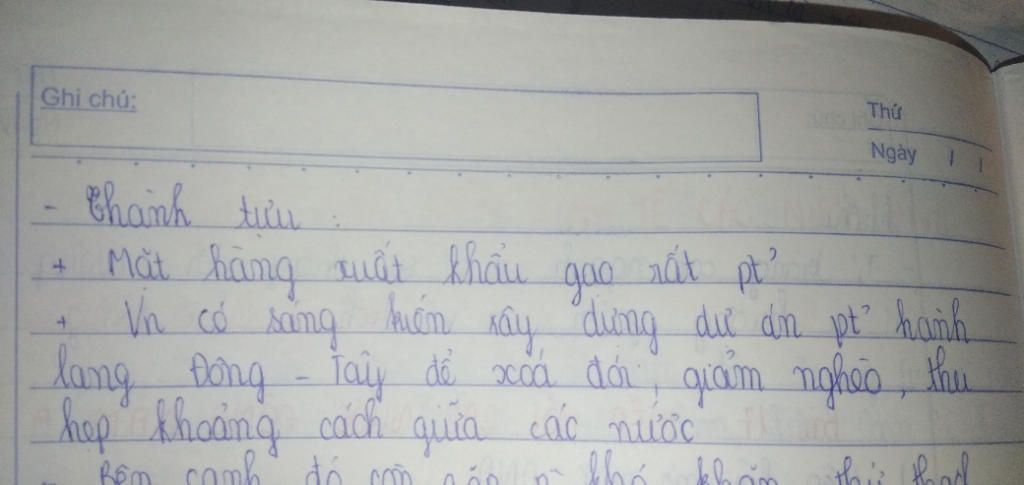 Ghi chú:
Thứ
Ngày / /
- Thành tựu :
+ Mặt hàng xuất khẩu gạo rất pt'
+ Vn có sáng kiến xây dựng dự án pt' hành
lang Đông - Tây để xoá đói, giảm nghèo, thu
hẹp khoảng cách giữa các nước
- Bên cạnh đó còn khó khăn thử thách